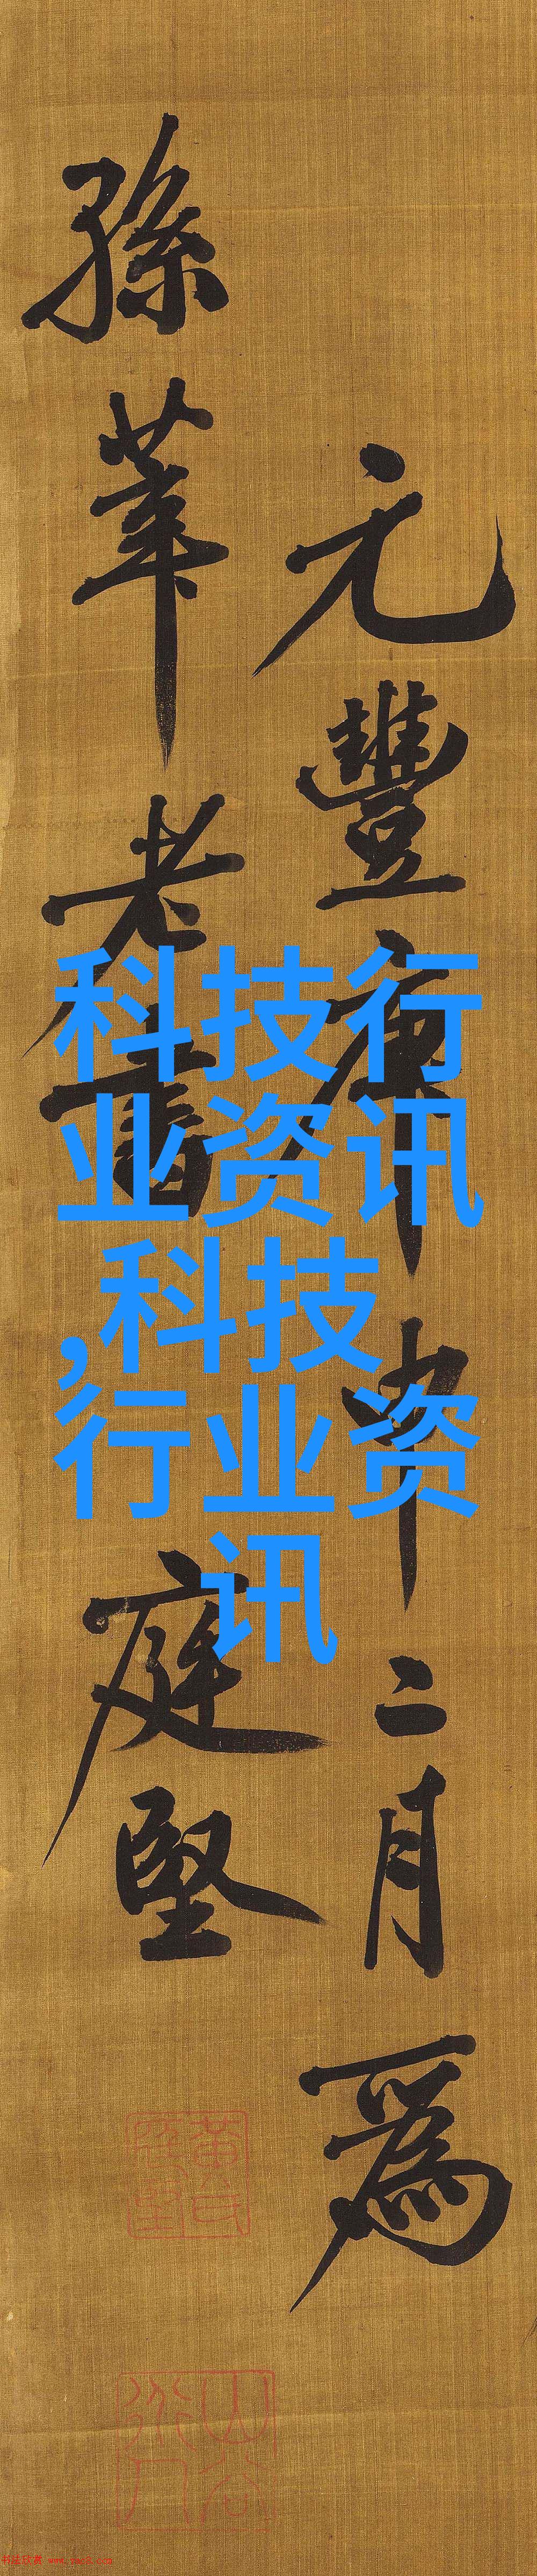 元豐庚申二月爲
孫莘老書
庭堅
科技行
业资讯
,科技
行业资
讯